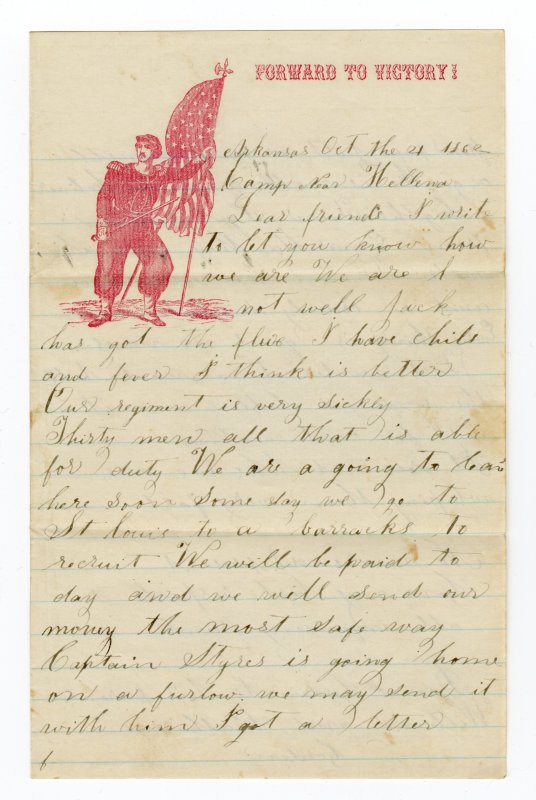 FORWARD TO VICTORY!
Arkansas Oct the 21 1862
Camp Near Hellena
Dear friends I write
to let you know how
we are We are
not well Jack
has got the I have chils
and fever I think is better
Our regiment is very sickly
Thirty men all that is able
for duty We are a going to leav
here soon some say we go to
St Louis to a barracks to
recruit We will be paid to
day and we will send our
money the most safe way
Captain Styres is going home
on a furlow we may send it
with him I got a letter